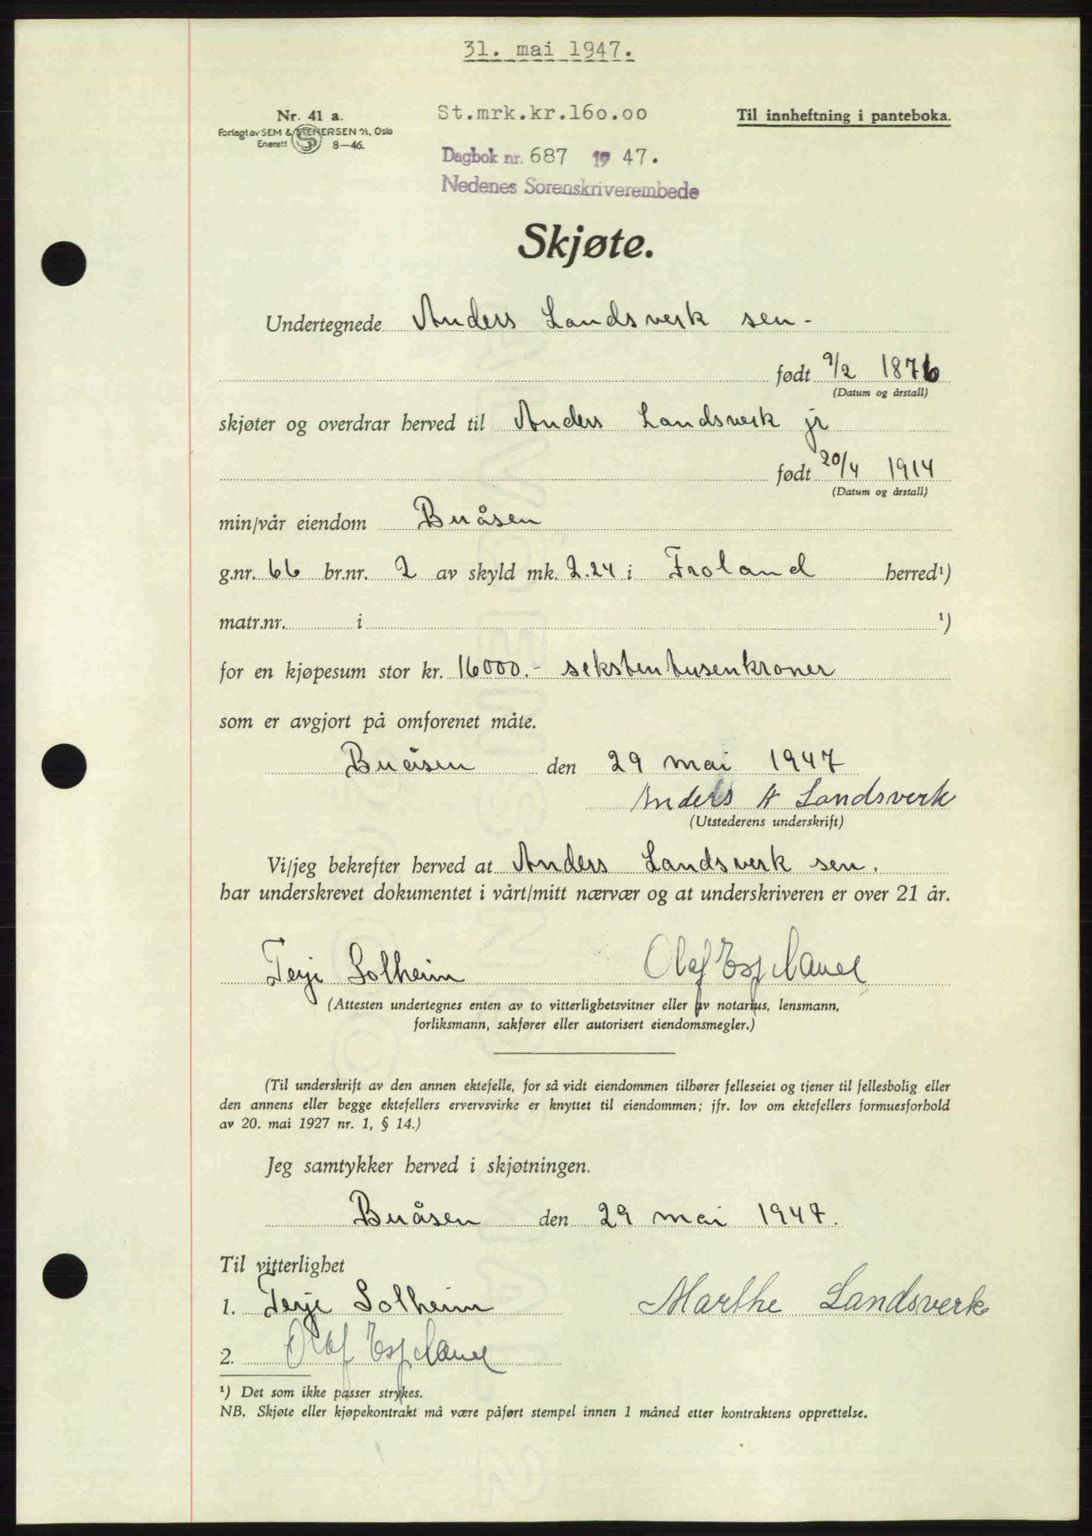 31. mai 1947.
Nr. 41 a.
Forlagt av SEM & STENERSEN A/S, Oslo
Enerett 8—46.
St.mrk.kr.160.00
Til innheftning i panteboka.
Dagbok nr. 687 19 47.
Nedenes Sorenskriverembede
Skjøte.
Undertegnede Anders Landsverk sen.
født 9/2 1876
(Datum og årstall)
skjøter og overdrar herved til Anders Landsverk jr
født 20/4 1914
(Datum og årstall)
min/vår eiendom Buåsen
g.nr. 66 br.nr. 2 av skyld mk. 2.24 i Froland herred¹)
matr.nr. i ¹)
for en kjøpesum stor kr. 16000.- sekstentusenkroner
som er avgjort på omforenet måte.
Buåsen den 29 mai 1947
Anders A Landsverk
(Utstederens underskrift)
Vi/jeg bekrefter herved at Anders Landsverk sen.
har underskrevet dokumentet i vårt/mitt nærvær og at underskriveren er over 21 år.
Terje Solheim Olaf Espeland
(Attesten undertegnes enten av to vitterlighetsvitner eller av notarius, lensmann,
forliksmann, sakfører eller autorisert eiendomsmegler.)
(Til underskrift av den annen ektefelle, for så vidt eiendommen tilhører felleseiet og tjener til fellesbolig eller
den annens eller begge ektefellers ervervsvirke er knyttet til eiendommen; jfr. lov om ektefellers formuesforhold
av 20. mai 1927 nr. 1, § 14.)
Jeg samtykker herved i skjøtningen.
Buåsen den 29 mai 1947.
Til vitterlighet
1. Terje Solheim Marthe Landsverk
2. Olaf Espeland
¹) Det som ikke passer strykes.
NB. Skjøte eller kjøpekontrakt må være påført stempel innen 1 måned etter kontraktens opprettelse.